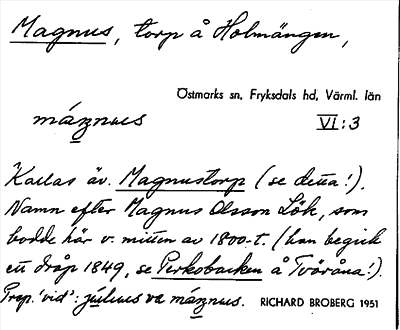 Magnus, torp å Holmängen,
Östmarks sn, Fryksdals hd, Värml. län
máznus VI:3
Kallas äv. Magnustorp (se detta!).
Namn efter Magnus Olsson Lök, som
bodde här v. mitten av 1800-t. (han begick
ett dråp 1849, se Perkobacken å Tvåråna!).
Prep. 'vid': július va máznus. RICHARD BROBERG 1951